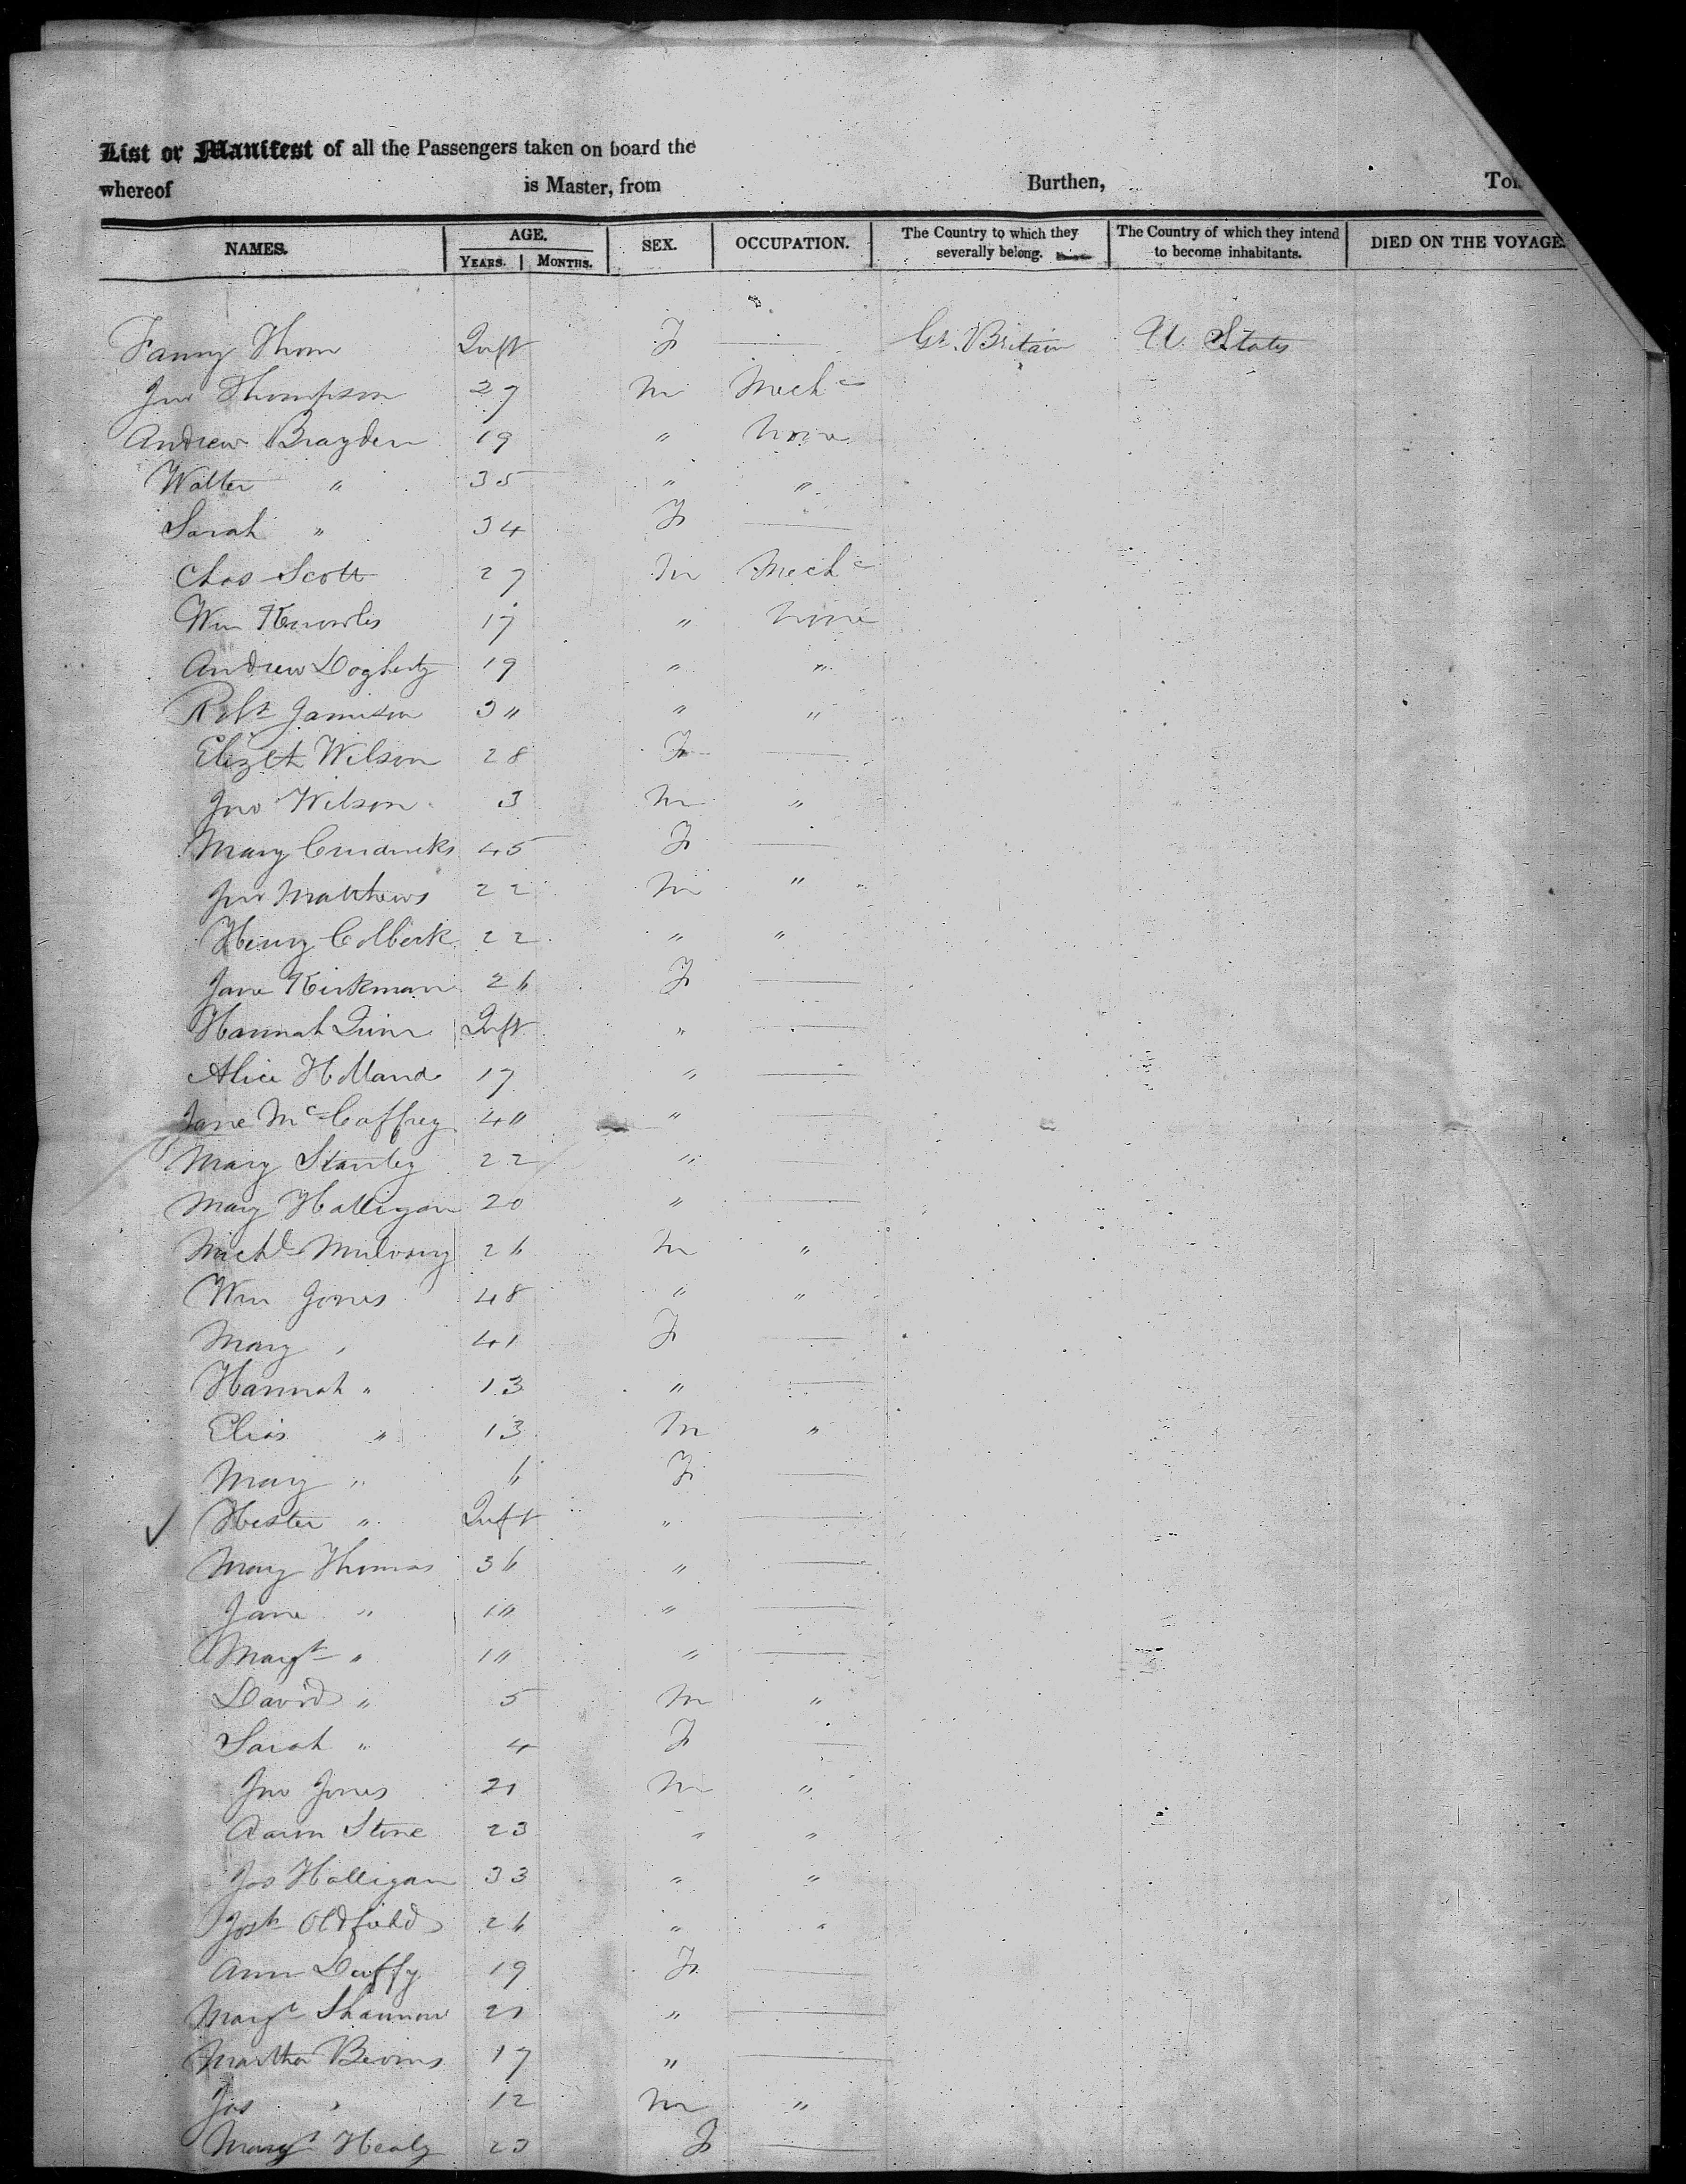 List or Manifest of all the Passengers taken on board the
whereof is Master, from Burthen, Ton
NAMES. AGE. YEARS. MONTHS. SEX. OCCUPATION. The Country to which they severally belong. The Country of which they intend to become inhabitants. DIED ON THE VOYAGE.
Fanny Thom Inft F — Gt. Britain U. States
Jno Thompson 27 M Mechc
Andrew Brayden 19 " None
Walter " 35 " "
Sarah " 34 F —
Chas Scott 27 M Mechc
Wm Knowles 17 " None
Andrew Dogherty 19 " "
Robt Jamison 30 " "
Elizth Wilson 28 F —
Jno Wilson 3 M "
Mary 45 F —
Jno Matthews 22 M "
Henry Colbeck 22 " "
Jane Kirkman 26 F —
Hannah Quinn Inft " —
Alice Holland 17 " —
Jane McCaffrey 40 " —
Mary Stanley 22 " —
Mary Halligan 20 " —
Michl Mulvany 26 M "
Wm Jones 48 " "
Mary " 41 F —
Hannah " 13 " —
Elias " 13 M "
Mary " 6 F —
Hester " Inft " —
Mary Thomas 36 " —
Jane " 10 " —
Margt " 10 " —
David " 5 M "
Sarah " 4 F —
Jno Jones 21 M "
Aaron Stone 23 " "
Jas Halligan 33 " "
Josh Oldfield 26 " "
Ann Duffy 19 F —
Margt Shannon 21 " —
Martha Bevins 17 " —
Jas " 12 M "
Margt Healy 23 F —